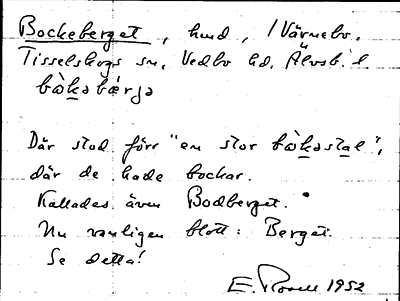 Bockeberget, hmd, i Värnebo,
Tisselskogs sn, Vedbo hd, Älvsb. l.
bòkabæ̀rjə
Där stod förr "en stor bòkastal",
där de hade bockar.
Kallades även Bodberget.
Nu vanligen blott: Berget.
Se detta!
E. 1952